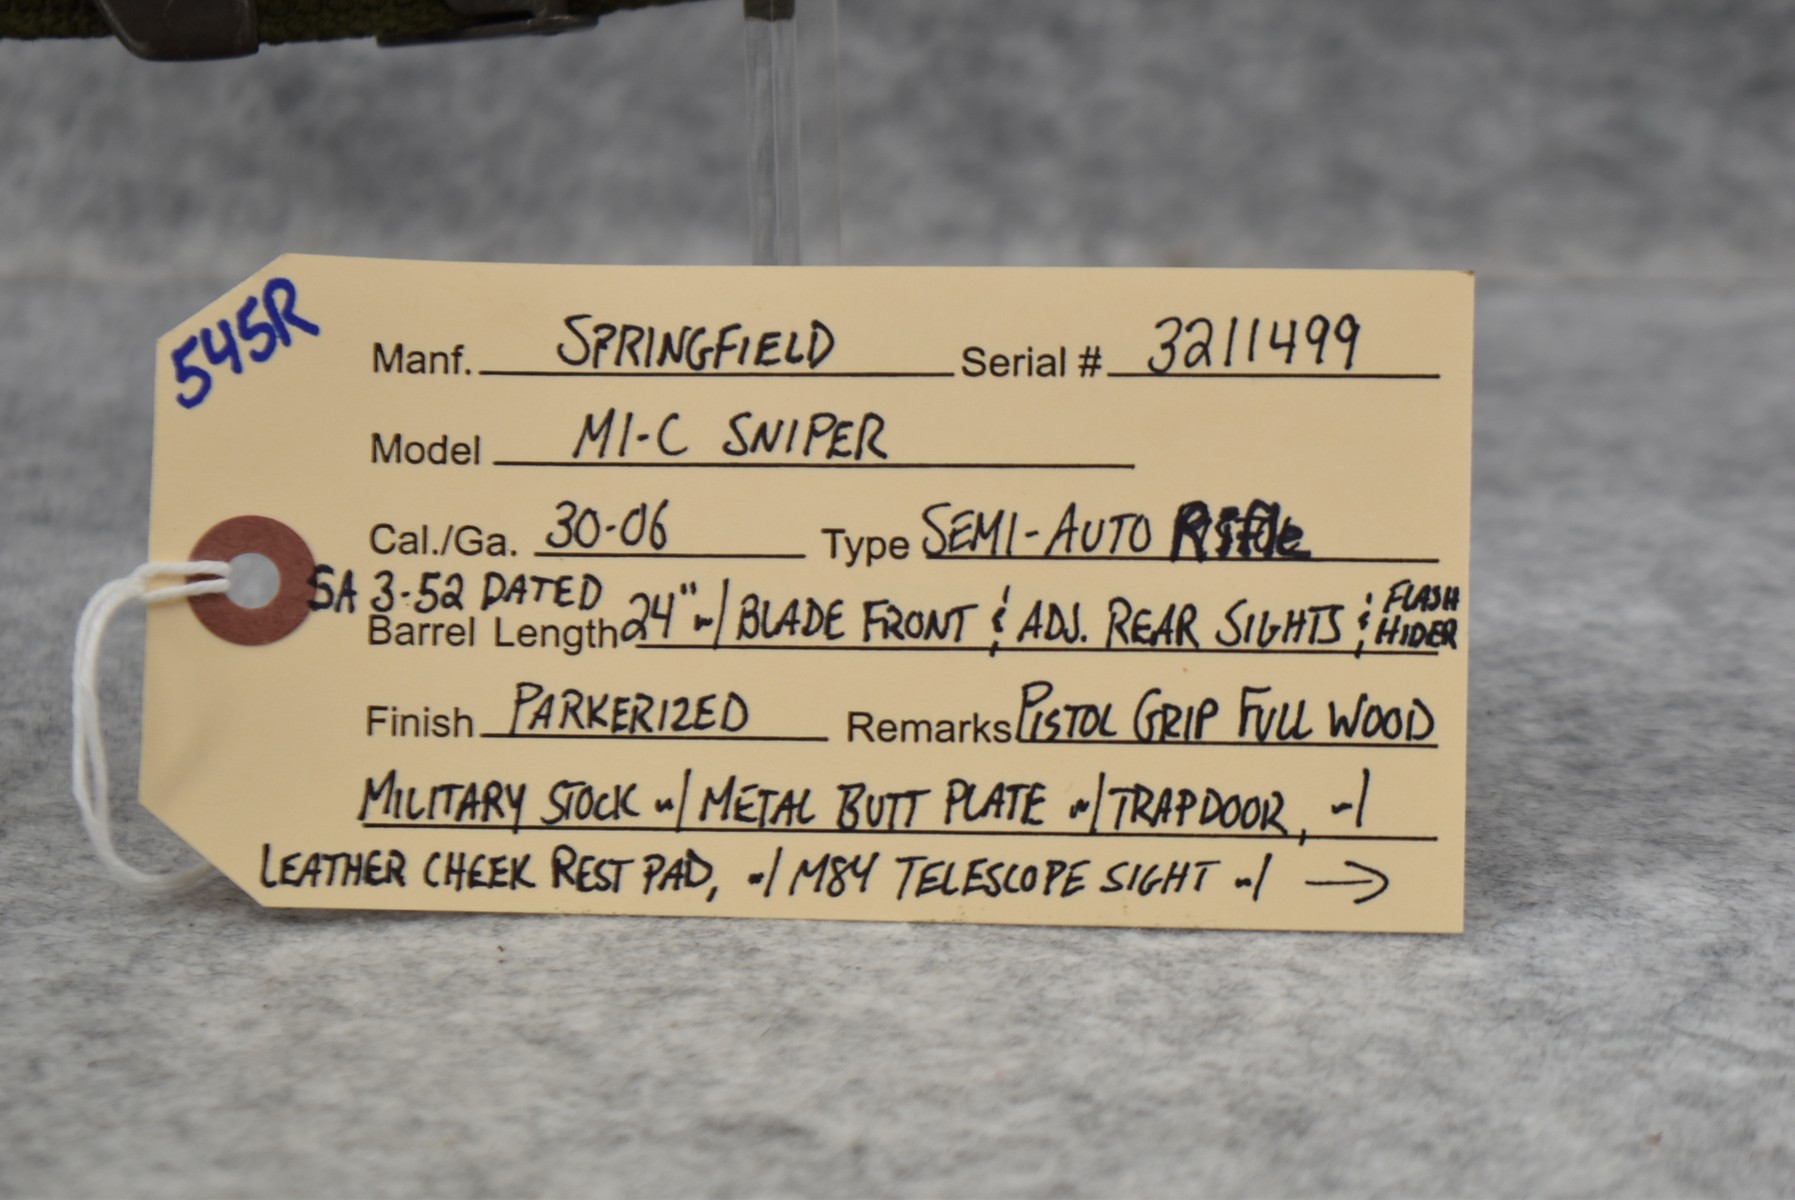 545R
Manf. SPRINGFIELD Serial # 3211499
Model M1-C SNIPER
Cal./Ga. 30-06 Type SEMI-AUTO Rifle
SA 3-52 DATED
Barrel Length 24" w/ BLADE FRONT & ADJ. REAR SIGHTS & FLASH HIDER
Finish PARKERIZED Remarks PISTOL GRIP FULL WOOD
MILITARY STOCK w/ METAL BUTT PLATE w/ TRAPDOOR, w/
LEATHER CHEEK REST PAD, w/ M84 TELESCOPE SIGHT w/ →